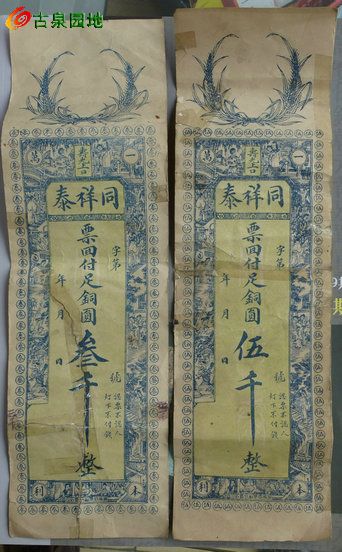 古泉园地
一 萬
壽光
古
同祥泰
字第
票回付足銅圓叁千整
年 月 日
號
認票不認人
打下不付錢
本 利
一 萬
同祥泰
字第
票回付足銅圓伍千整
年 月 日
號
認票不認人
打下不付錢
本 利